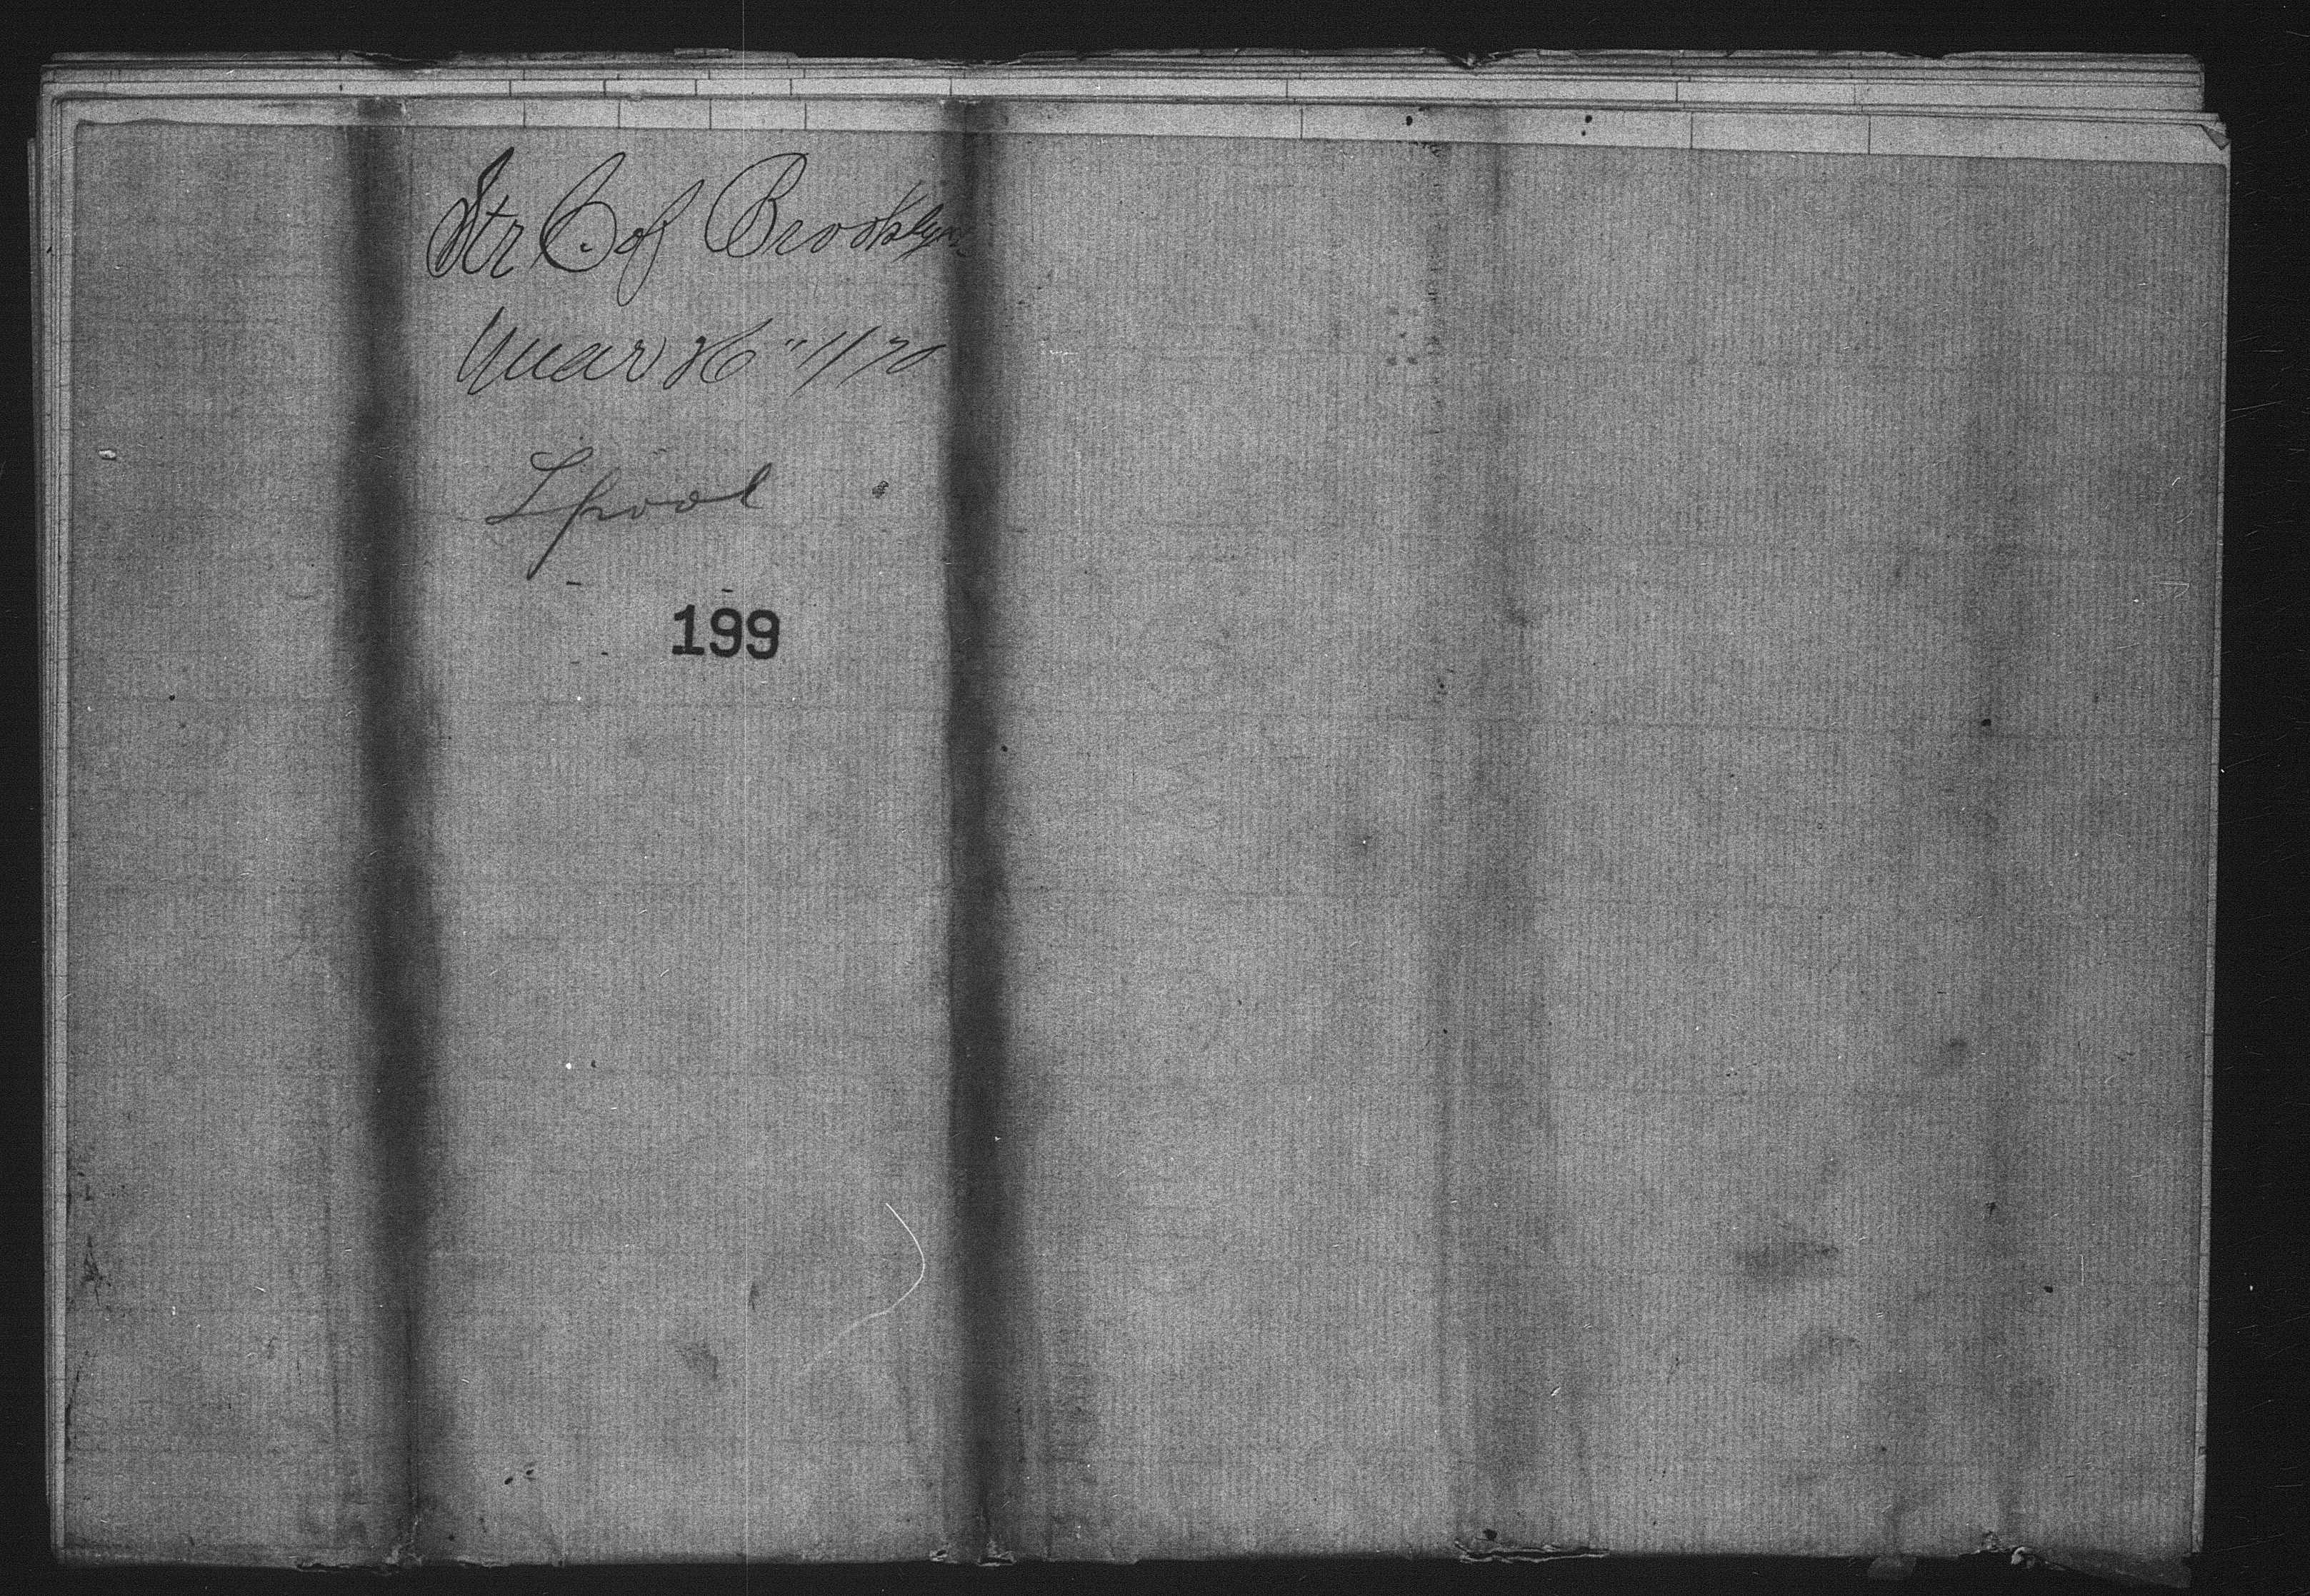 Str C. of Brooklyn
Mar 26" 1170
Lpool
199